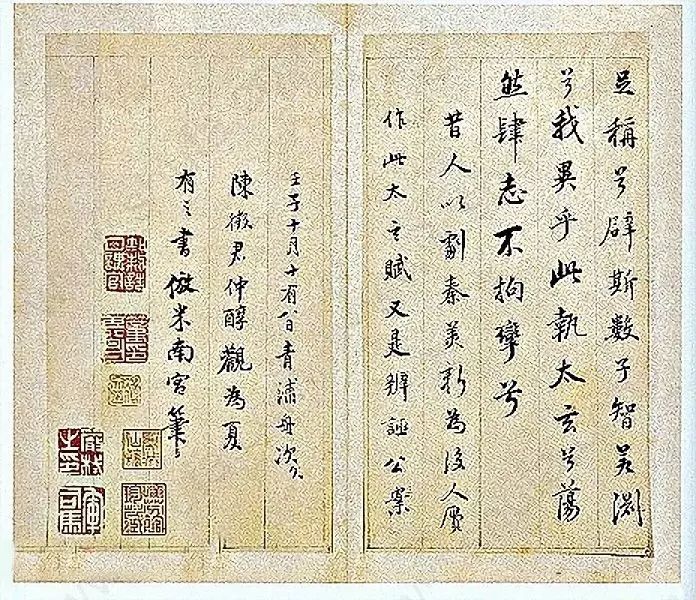 足稱兮辟斯數子智若淵
兮我異乎此執太玄兮蕩
然肆志不拘攣兮
昔人以劇秦美新為後人贋
作此太玄賦又是辨誣公案
壬子十月十有八日青浦舟次
陳徵君仲醇觀為夏
有之書倣米南宮筆